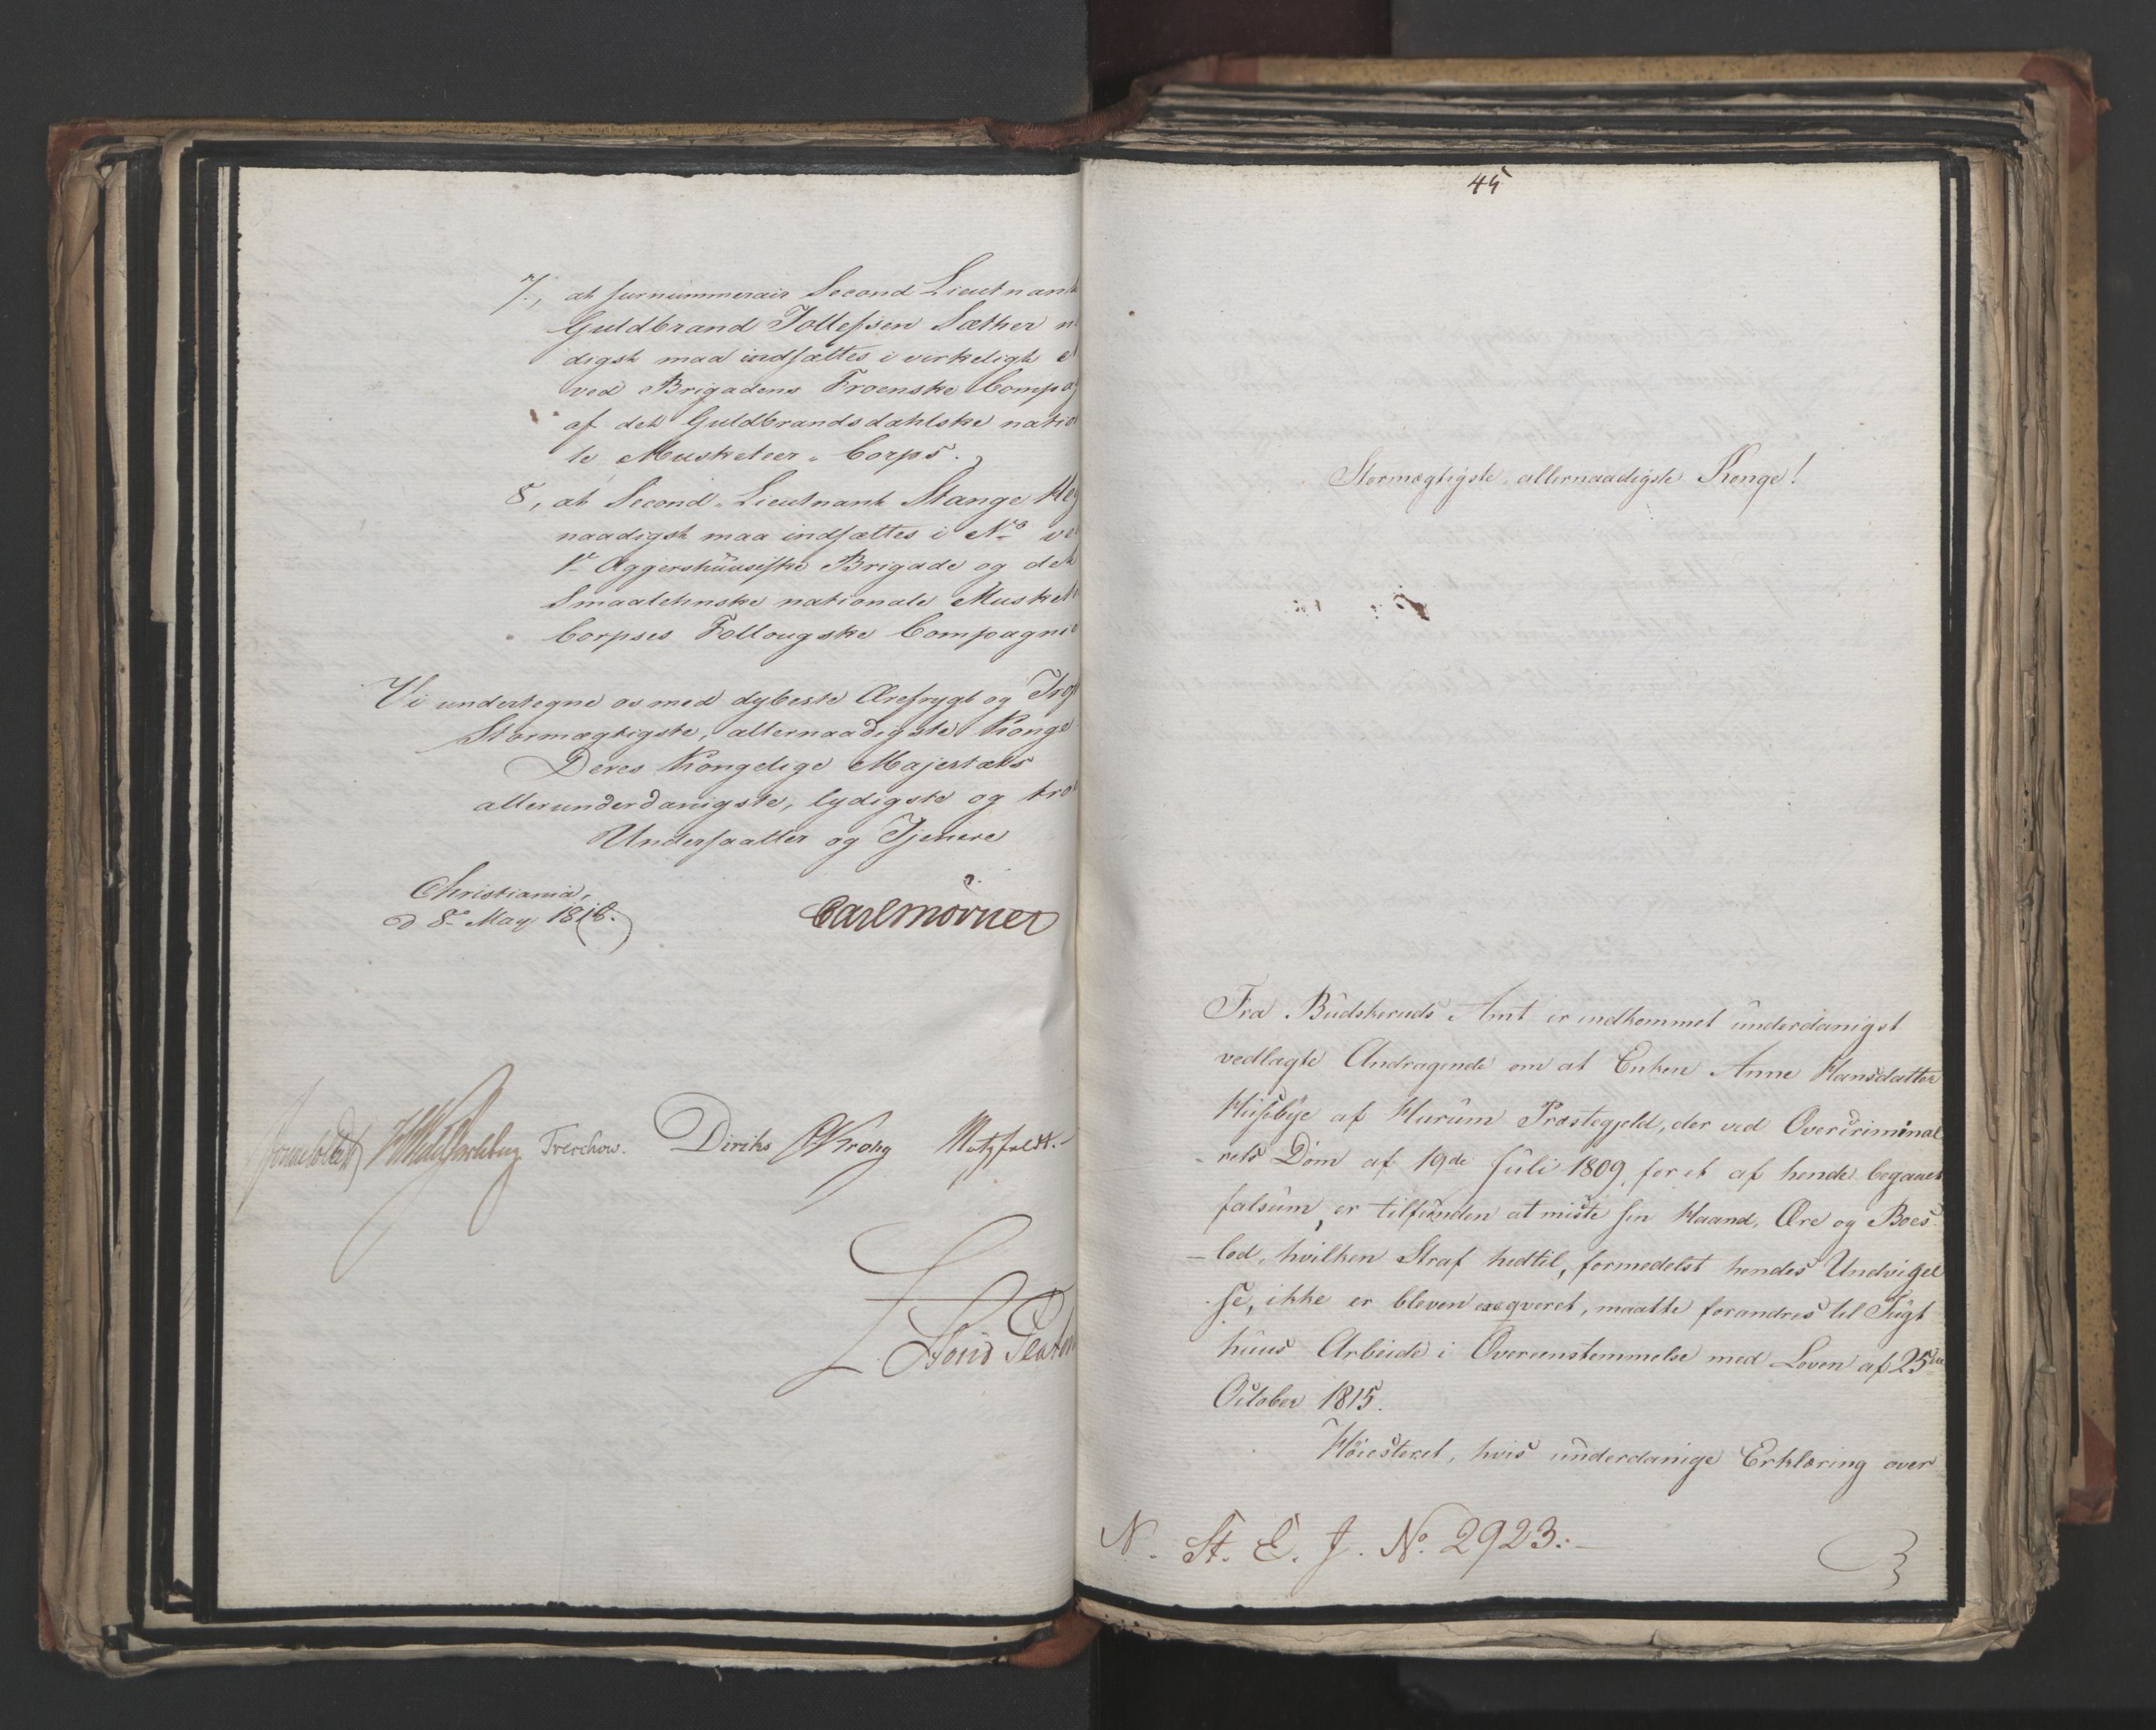 7., at surnummerair Second Lieutnant
Guldbrand Tollefsen Sæther
digst maa indsættes i virkeligt
ved Brigadens Froenske Compag
af det Guldbrandsdahlske natio
le Musketeer-Corps.
8, at Second-Lieutnant Stange
naadigst maa indsættes i No ve
1e Aggershuusiske Brigade og det
Smaalehnske nationale Musket
Corpses Follougske Compagnie
Vi undertegne os med dybeste Ærefrygt og
Stormægtigste, allernaadigste Konge
Deres Kongelige Majestæts
allerunderdanigste, lydigste og tro
Undersaatter og Tjenere
Christiania,
d 8e May 1818.
Carl Mörner
Sommerfeldt Treschow. Diriks Krohg Motzfeldt.
45
Stormægtigste, allernaadigste Konge!
Fra Budskeruds Amt er indkommet underdanigst
vedlagte Andragende om at Enken Anne Hansdatter
Husebye af Hurum Præstegjeld, der ved Overcriminal
-rets Dom af 19de Juli 1809, for et af hende begaaet
falsum, er tilfunden at miste sin Haand, Ære og Boes-
-lod, hvilken Straf hidtil, formedelst hendes Undvigel
-se, ikke er bleven exeqveret, maatte forandres til Tugt
huus Arbeide i Overeensstemmelse med Loven af 25de
October 1815.
Höiesteret, hvis underdanige Erklæring over
N. St. E. J. No. 2923:-